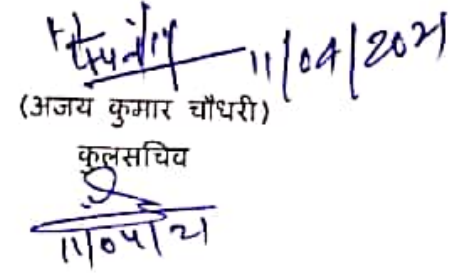 11/04/2021
(अजय कुमार चौधरी)
कुलसचिव
11/04/21